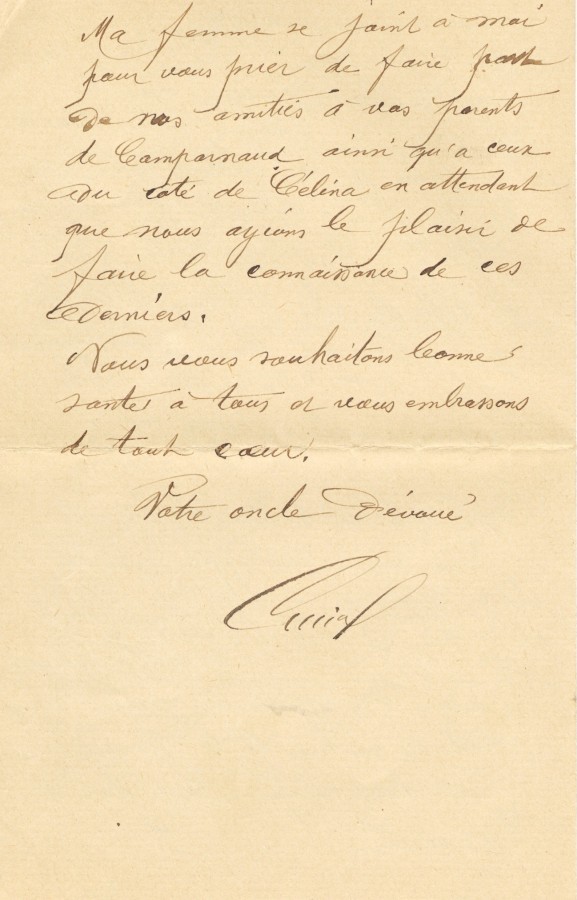 Ma femme se joint à moi
pour vous prier de faire part
de nos amitiés à vos parents
de Camparnaud ainsi qu'a ceux
du coté de Célina en attendant
que nous ayions le plaisir de
faire la connaissance de ces
derniers.
Nous vous souhaitons bonne
santé à tous et vous embrassons
de tout cœur.
Votre oncle dévoué